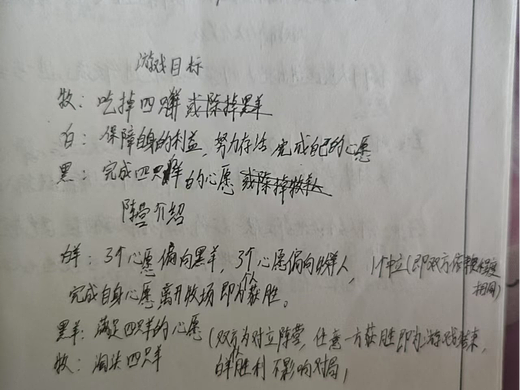 游戏目标
牧：吃掉四只羊或除掉黑羊
白：保障自身的利益，努力存活，完成自己的心愿
黑：完成四只羊的心愿或除掉牧羊人
阵营介绍
白羊：3个心愿偏向黑羊，3个心愿偏向牧羊人，1个中立(即双方倾向程度
相同)
完成自身心愿离开牧场即为获胜。
黑羊：满足四只羊的心愿(双方为对立阵营，任意一方获胜即为游戏结束，
牧：淘汰四只羊 白羊胜利不影响对局)